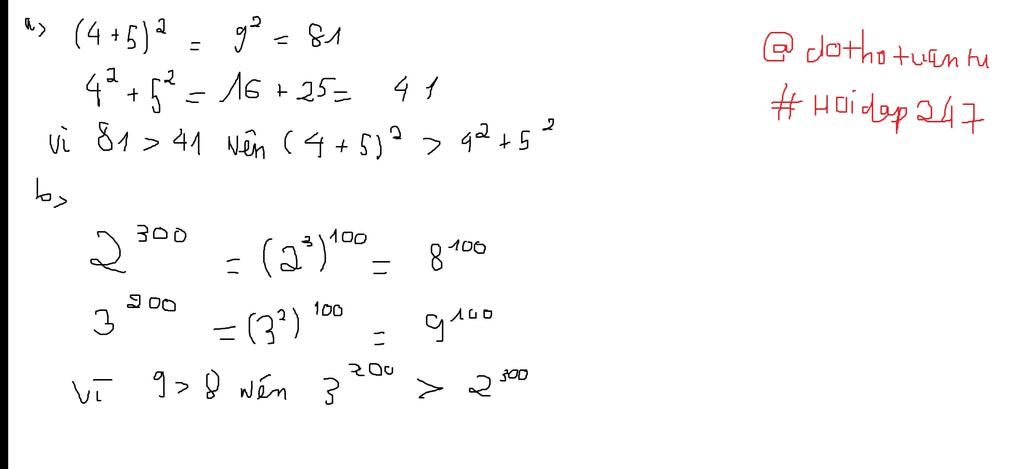 a> (4+5)² = 9² = 81
4² + 5² = 16 + 25 = 41
Vì 81 > 41 nên (4+5)² > 4² + 5²
b>
2³⁰⁰ = (2³)¹⁰⁰ = 8¹⁰⁰
3²⁰⁰ = (3²)¹⁰⁰ = 9¹⁰⁰
Vì 9 > 8 nên 3²⁰⁰ > 2³⁰⁰
@dothotuantu
#Hoidap247